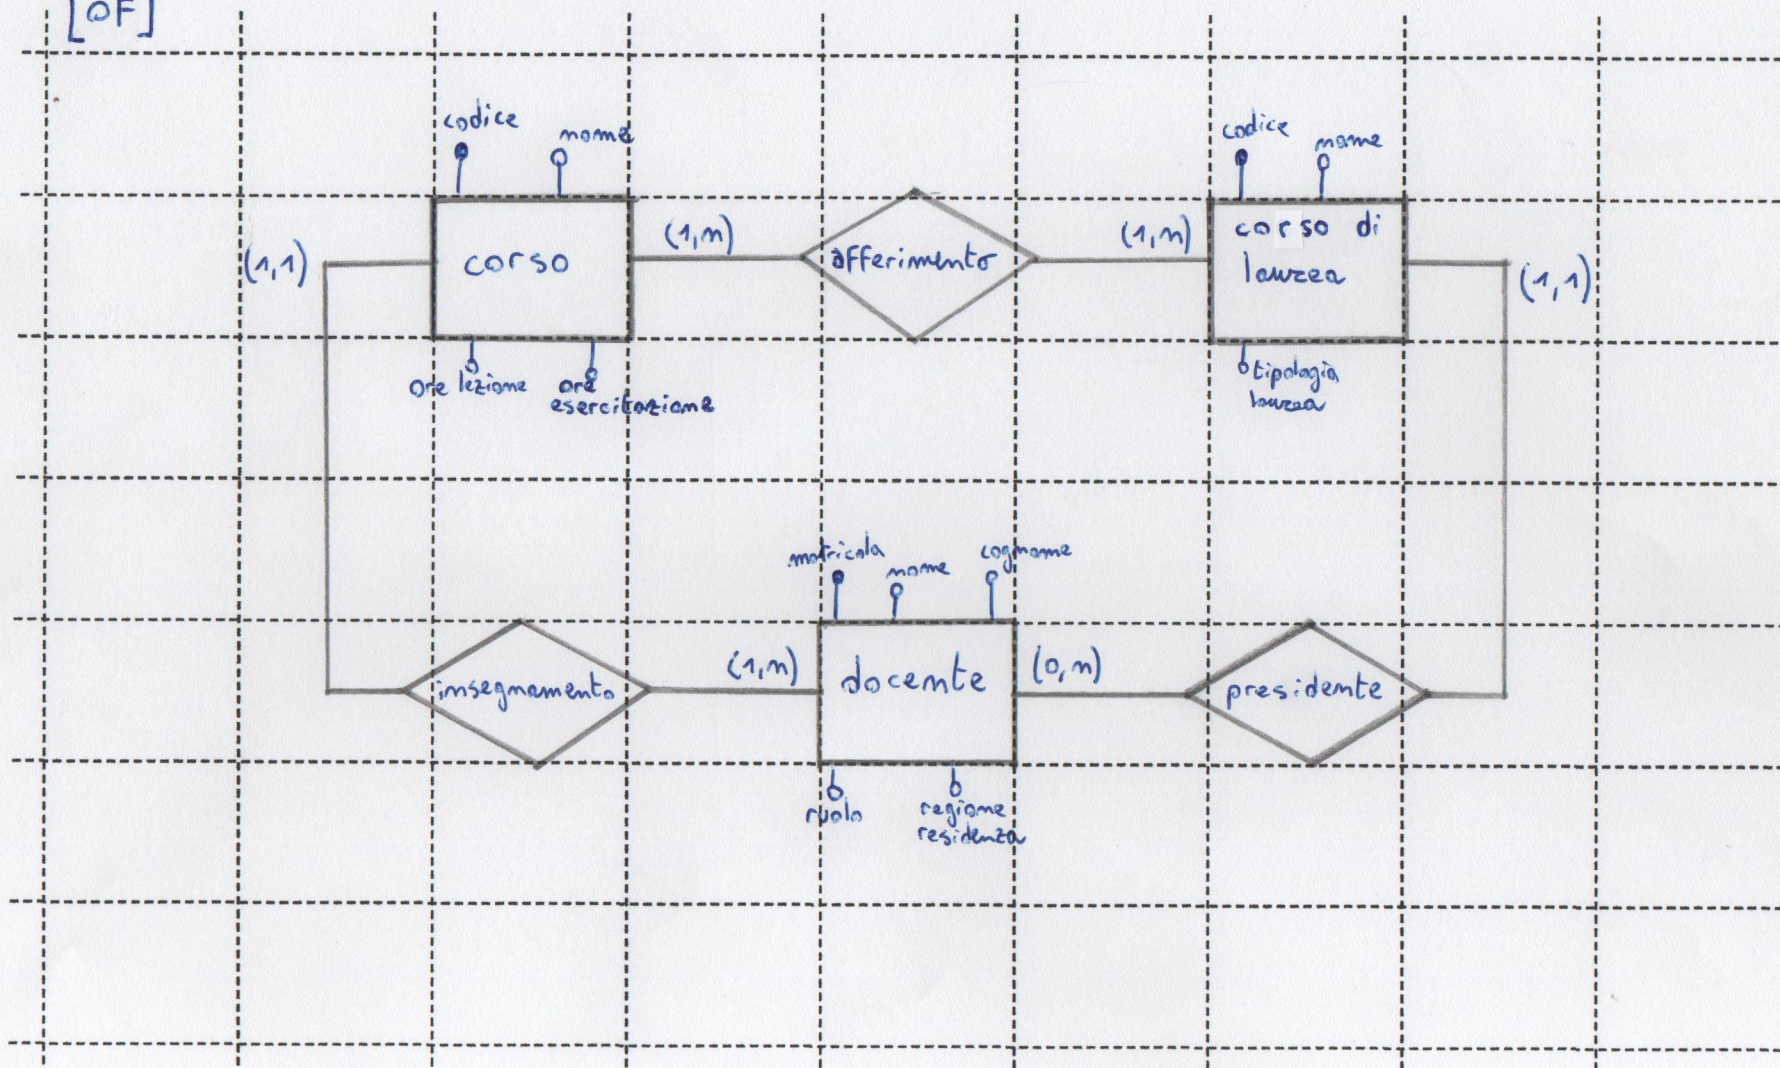 [OF]
codice
nome
codice
nome
(1,1)
corso
(1,n)
afferimento
(1,n)
corso di
laurea
(1,1)
ore lezione
ore
esercitazione
tipologia
laurea
matricola
nome
cognome
insegnamento
(1,n)
docente
(0,n)
presidente
ruolo
regione
residenza